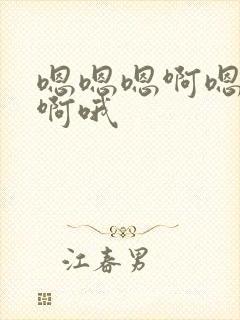 嗯嗯嗯啊嗯
啊哦
江春男